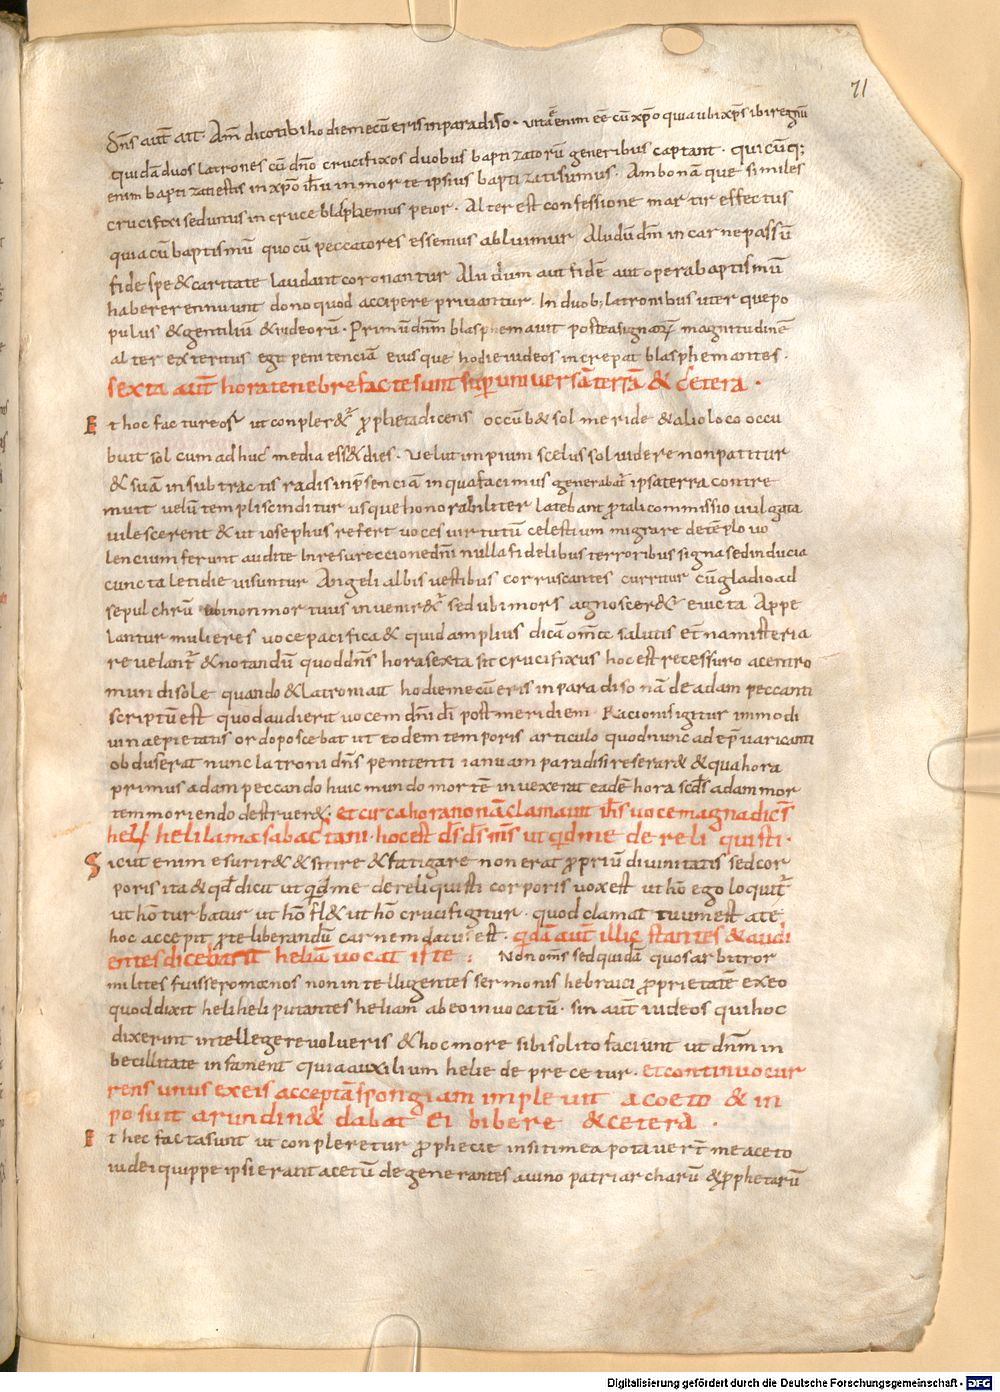 71
Dn̄s aut̄ ait Am̄ dico tibi hodie mecū eris in paradiso · vita ē enim eē cū xp̄o quia ubi xp̄s ibi regnū
quidā duos latrones cū dn̄o crucifixos duobus baptizatorū generibus captant · quicūq;
enim baptizati estis in xp̄o ih̄u in morte ipsius baptizati sumus · Ambo namque similes
crucifixi sed unus in cruce blasphemus peior · Alter est confessione martir effectus
quia cū baptismū quo cū peccatores essemus abluimur Alii dum dn̄m in carne passū
fide spe & caritate laudant coronantur Alii dum aut fidē aut opera baptismū
habere rennuunt dono quod accipere priuantur · In duob; latronibus uterque po
pulus & gentiliū & iudeorū · Primū dn̄m blasphemauit postea signorū magnitudinē
alter exterritus egit penitenciā eiusque hodie iudeos increpat blasphemantes ·
sexta aut̄ hora tenebre facte sunt sup̄ uniuersā terrā & cetera ·
Et hoc facture os ut conpler&ur ꝓpheta dicens occūb& sol meridie & alio loco occu
buit sol cum adhuc media ess& dies · Velut impium scelus sol uidere non patitur
& suā insubtractis radis in p̄senciā in qua facimus generabat̄ ipsa terra contre
muit uelū templi scinditur usque honorabiliter latebant ꝓ tali commissio uulgata
uilescerent & ut iosephus refert uoces uirtutū celestium migrare de tēplo uo
lencium ferunt audite In resureccione dn̄i nulla fidelibus terroribus signa sed inducia
cuncta letidie uisuntur Angeli albis uestibus corruscantes curritur cū gladio ad
sepulchrū ubi non mortuus inuenir&ur sed ubi mors agnoscer& euicta Appe
lantur mulieres uoce pacifica & quid amplius dicā om̄ia salutis et̄na misteria
reuelant̄ & notandū quod dn̄s hora sexta sit crucifixus hoc est recessuro a centro
mundi sole quando & latroni ait hodie mecū eris in paradiso nā de adam peccanti
scriptū est quod audierit uocem dn̄i dī post meridiem · Racionis igitur immo di
uinae pietatis ordo poscebat ut eodem temporis articulo quod nunc adē p̄uaricanti
obduserat nunc latroni dn̄s penitenti ianuam paradisi reserar& & qua hora
primus adam peccando huic mundo mortē inuexerat eadē hora scd̄s adam mor
tem moriendo destruer& · et circa hora nonā clamauit ih̄s uoce magna dicēs
heli heli lama sabactani · hoc est ds̄ ds̄ ms̄ ut qd me dereliquisti ·
Sicut enim esurir& & sitire & fatigare non erat ꝓpriū diuinitatis sed cor
poris ita & qd̄ dicit ut qd me dereliquisti corporis uox est ut hō ego loquit̄
ut hō turbatur ut hō fl& ut hō crucifigitur · quod clamat tuum est a te
hoc accepit ꝓ te liberandū carnem datus est · qdā aut̄ illic stantes & audi
entes dicebant heliā uocat iste : Non om̄s sed quidā quos arbitror
milites fuisse romanos non intelligentes sermonis hebraici ꝓprietatē ex eo
quod dixit heli heli putantes heliam ab eo inuocatū · sin aut̄ iudeos qui hoc
dixerint intellegere uolueris & hoc more sibi solito faciunt ut dn̄m in
becillitate infament qui a auxilium helie deprecetur · et continuo cur
rens unus ex eis acceptā spongiam impleuit aceto & in
posuit arundin& dabat ei bibere & cetera ·
Et hec facta sunt ut conpleretur ꝓphecie in siti mea potauer̄t me aceto
iudei quippe ipsi erant acetū degenerantes a uino patriarcharū & ꝓphetarū
Digitalisierung gefördert durch die Deutsche Forschungsgemeinschaft - DFG